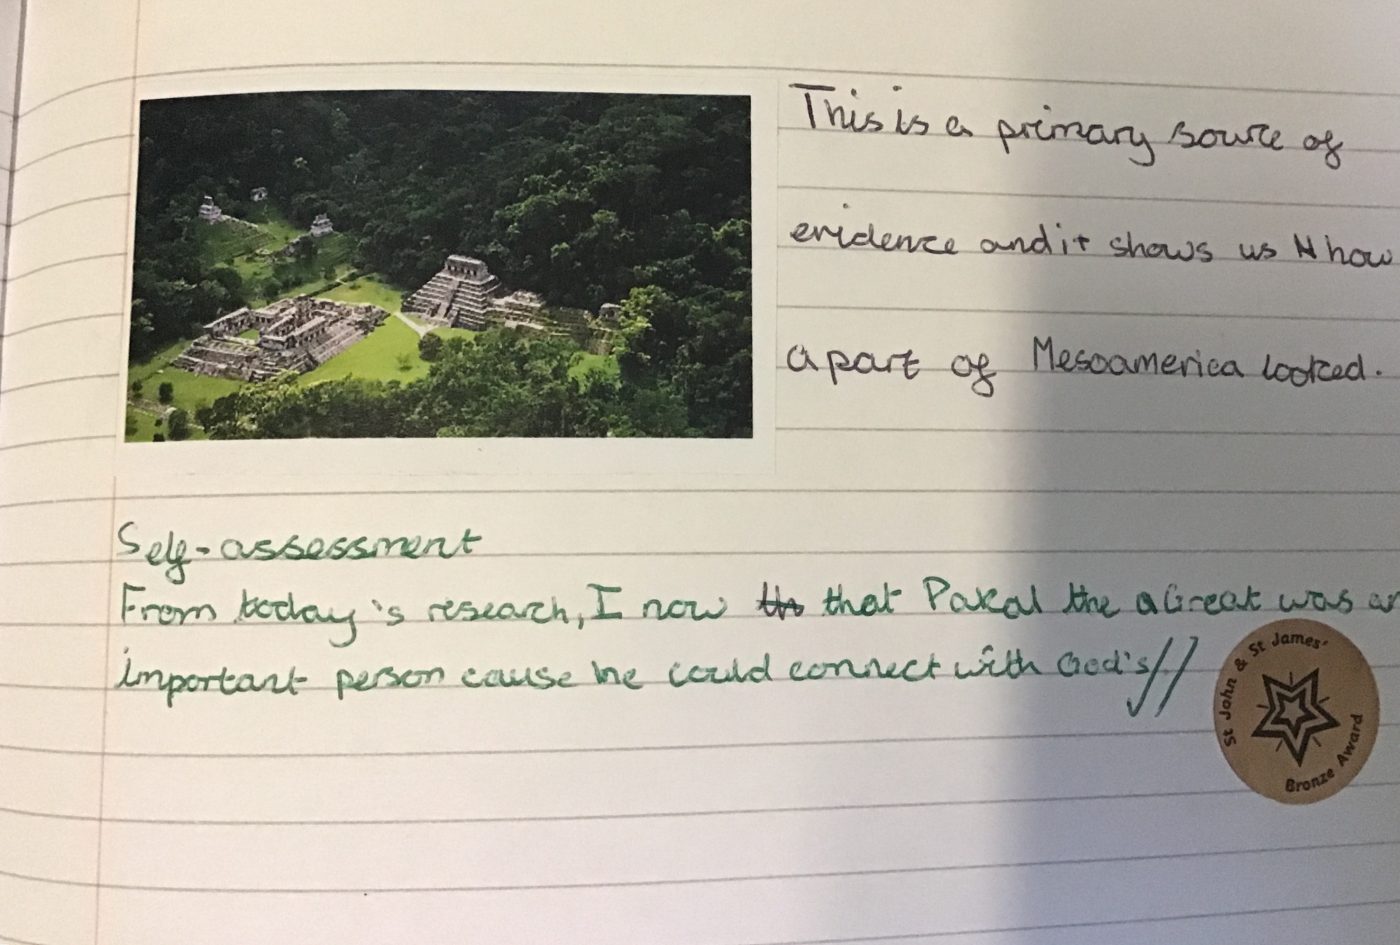 This is a primary source of
evidence and it shows us how
a part of Mesoamerica looked.
Self-assessment
From today's research, I now that Pakal the Great was an
important person cause he could connect with God's
St John & St James'
Bronze Award